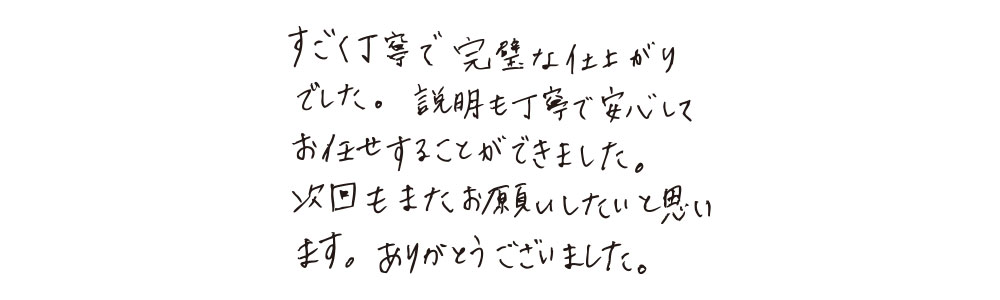 すごく丁寧で完璧な仕上がり
でした。説明も丁寧で安心して
お任せすることができました。
次回もまたお願いしたいと思い
ます。ありがとうございました。